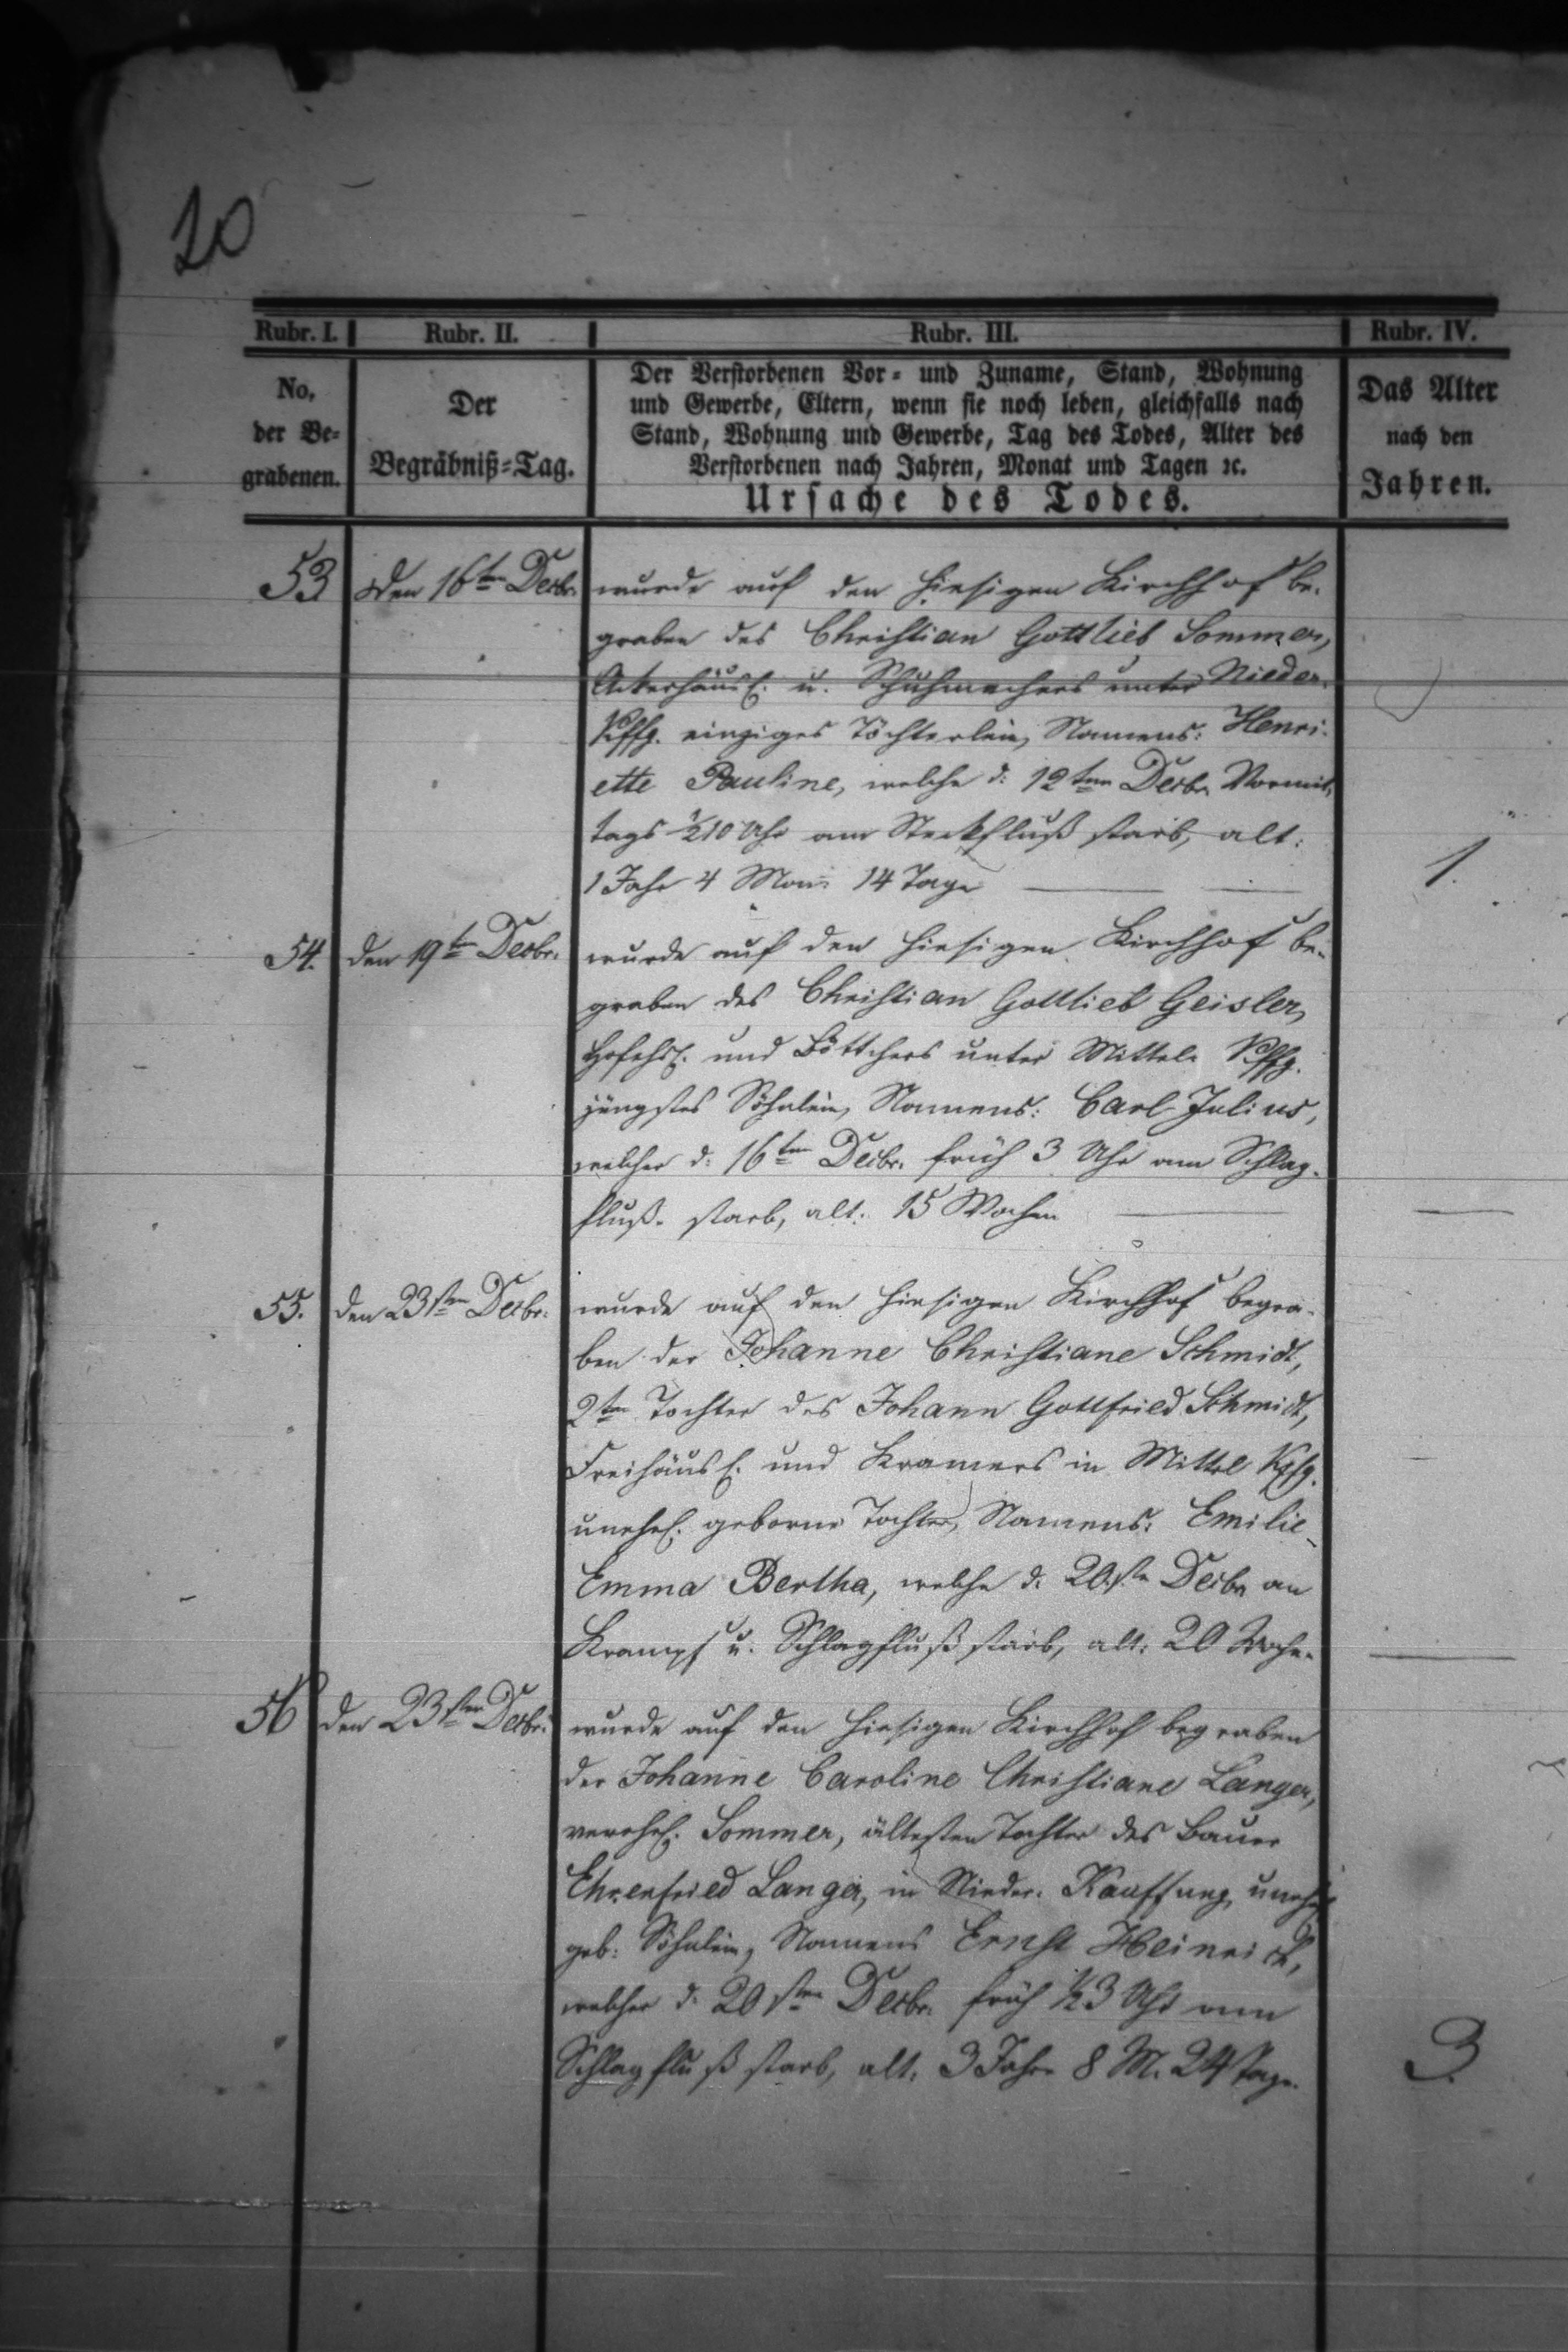 20
Rubr. I. Rubr. II. Rubr. III. Rubr. IV.
No, der Be= grabenen.
Der Begräbniß=Tag.
Der Verstorbenen Vor= und Zuname, Stand, Wohnung
und Gewerbe, Eltern, wenn sie noch leben, gleichfalls nach
Stand, Wohnung und Gewerbe, Tag des Todes, Alter des
Verstorbenen nach Jahren, Monat und Tagen ꝛc.
Ursache des Todes.
Das Alter
nach den
Jahren.
53 den 16ten Decbr. wurde auf den hiesigen Kirchhof be-
graben des Christian Gottlieb Sommer,
Ackerhäusl. u. Schuhmachers unter Nieder-
Kffg. einziges Töchterlein, Namens: Henri-
ette Pauline, welche d: 12ten Decbr. Vormit-
tags ½10 Uhr am Steckfluß starb, alt:
1 Jahr 4 Mon: 14 Tage 1.
54. den 19t Decbr. wurde auf den hiesigen Kirchhof be-
graben des Christian Gottlieb Geisler,
Hofehsl. und Böttchers unter Mittel- Kffg.
jüngstes Söhnlein, Namens: Carl Julius,
welcher d: 16ten Decbr. früh 3 Uhr am Schlag-
fluß. starb, alt: 15 Wochen
55. den 23sten Decbr. wurde auf den hiesigen Kirchhof begra-
ben der Johanne Christiane Schmidt,
2ten Tochter des Johann Gottfried Schmidt,
Freihäusl. und Kramers in Mittel Kffg.
unehel. geborne Tochter, Namens: Emilie
Emma Bertha, welche d: 20ste Decbr an
Krampf u. Schlagfluß starb, alt: 20 Woch.
56 den 23sten Decbr. wurde auf den hiesigen Kirchhof begraben
der Johanne Caroline Christiane Langer,
verehel. Sommer, ältesten Tochter des Bauer
Ehrenfried Langer, in Nieder- Kauffung, unehel
geb: Söhnlein, Namens Ernst Heinrich,
welcher d: 20sten Decbr. früh ½3 Uhr am
Schlagfluß starb, alt: 3 Jahr 8 M. 24 Tage. 3